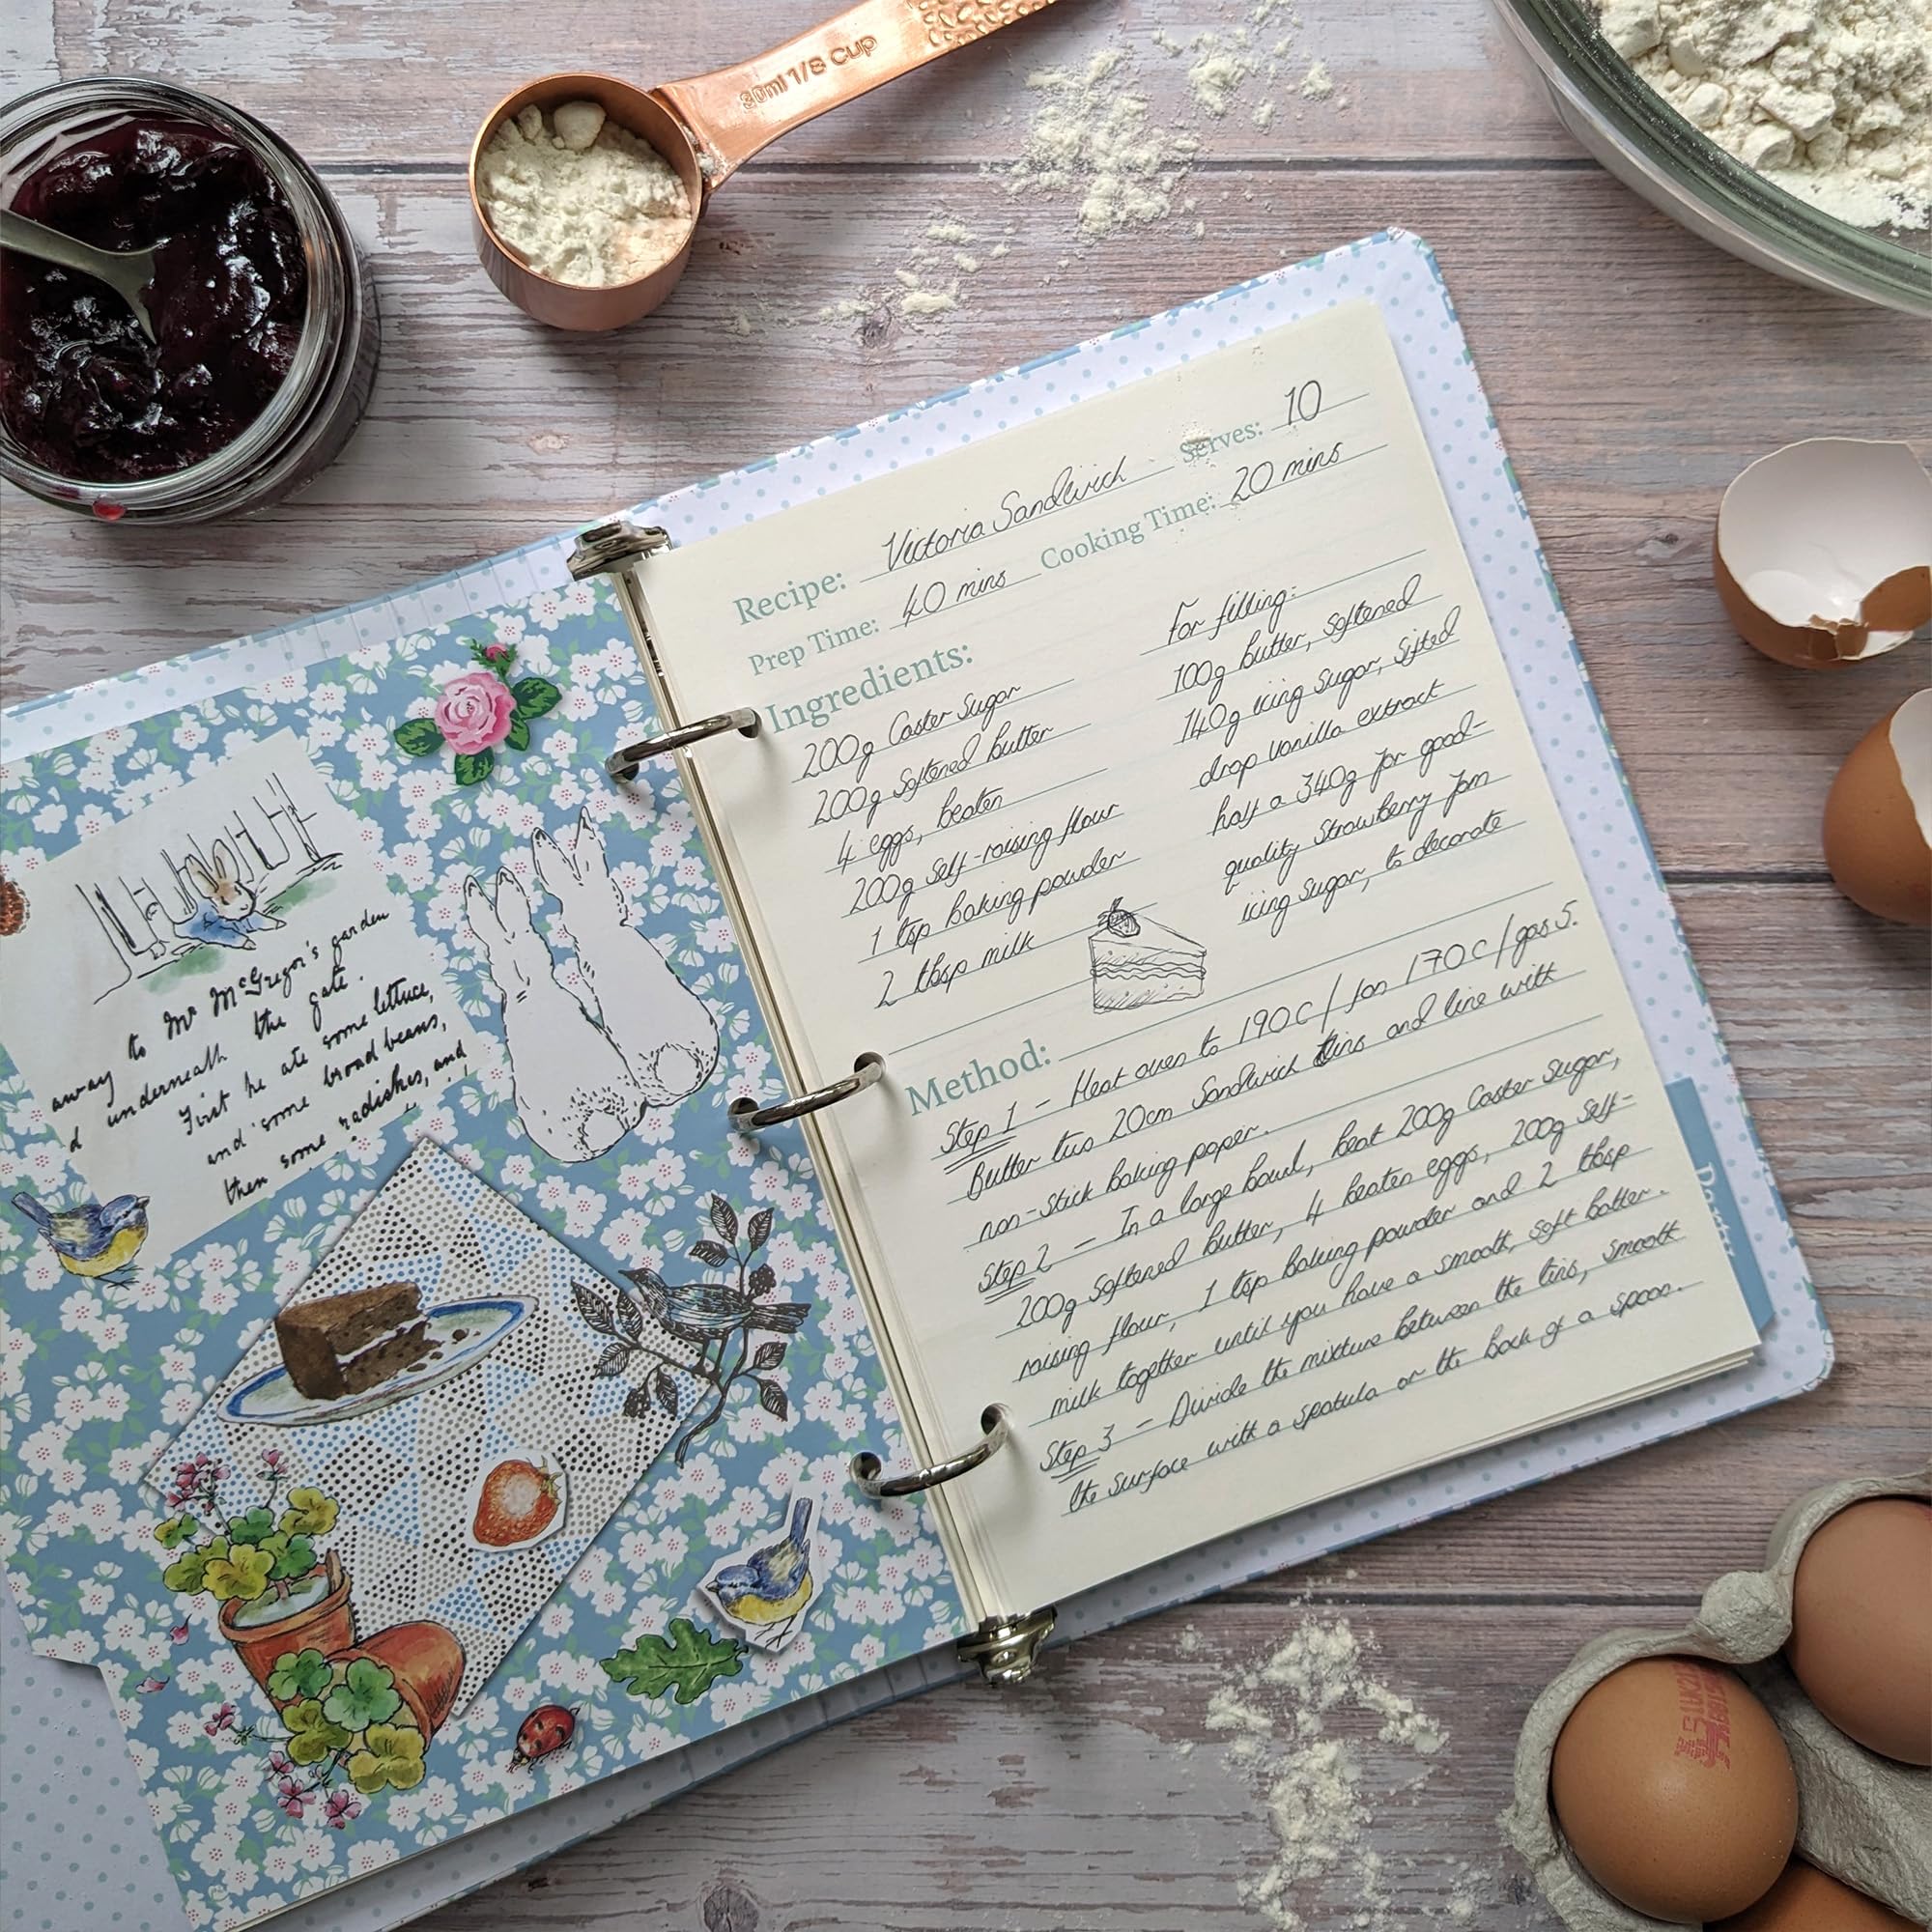 30ml 1/8 CUP
Recipe: Victoria Sandwich Serves: 10
Prep Time: 40 mins Cooking Time: 20 mins
Ingredients:
200g Caster Sugar
200g Softened butter
4 eggs, beaten
200g self-raising flour
1 tsp baking powder
2 tbsp milk
For filling:
100g butter, softened
140g icing sugar, sifted
drop vanilla extract
half a 340g jar good-
quality strawberry jam
icing sugar, to decorate
Method:
Step 1 - Heat oven to 190C/fan 170C/gas 5.
Butter two 20cm Sandwich tins and line with
non-stick baking paper.
Step 2 - In a large bowl, beat 200g Caster Sugar,
200g Softened butter, 4 beaten eggs, 200g self-
raising flour, 1 tsp baking powder and 2 tbsp
milk together until you have a smooth, soft batter.
Step 3 - Divide the mixture between the tins, smooth
the surface with a spatula or the back of a spoon.
to Mr McGregor's garden
away underneath the gate.
First he ate some lettuce,
and some broad beans,
then some radishes, and